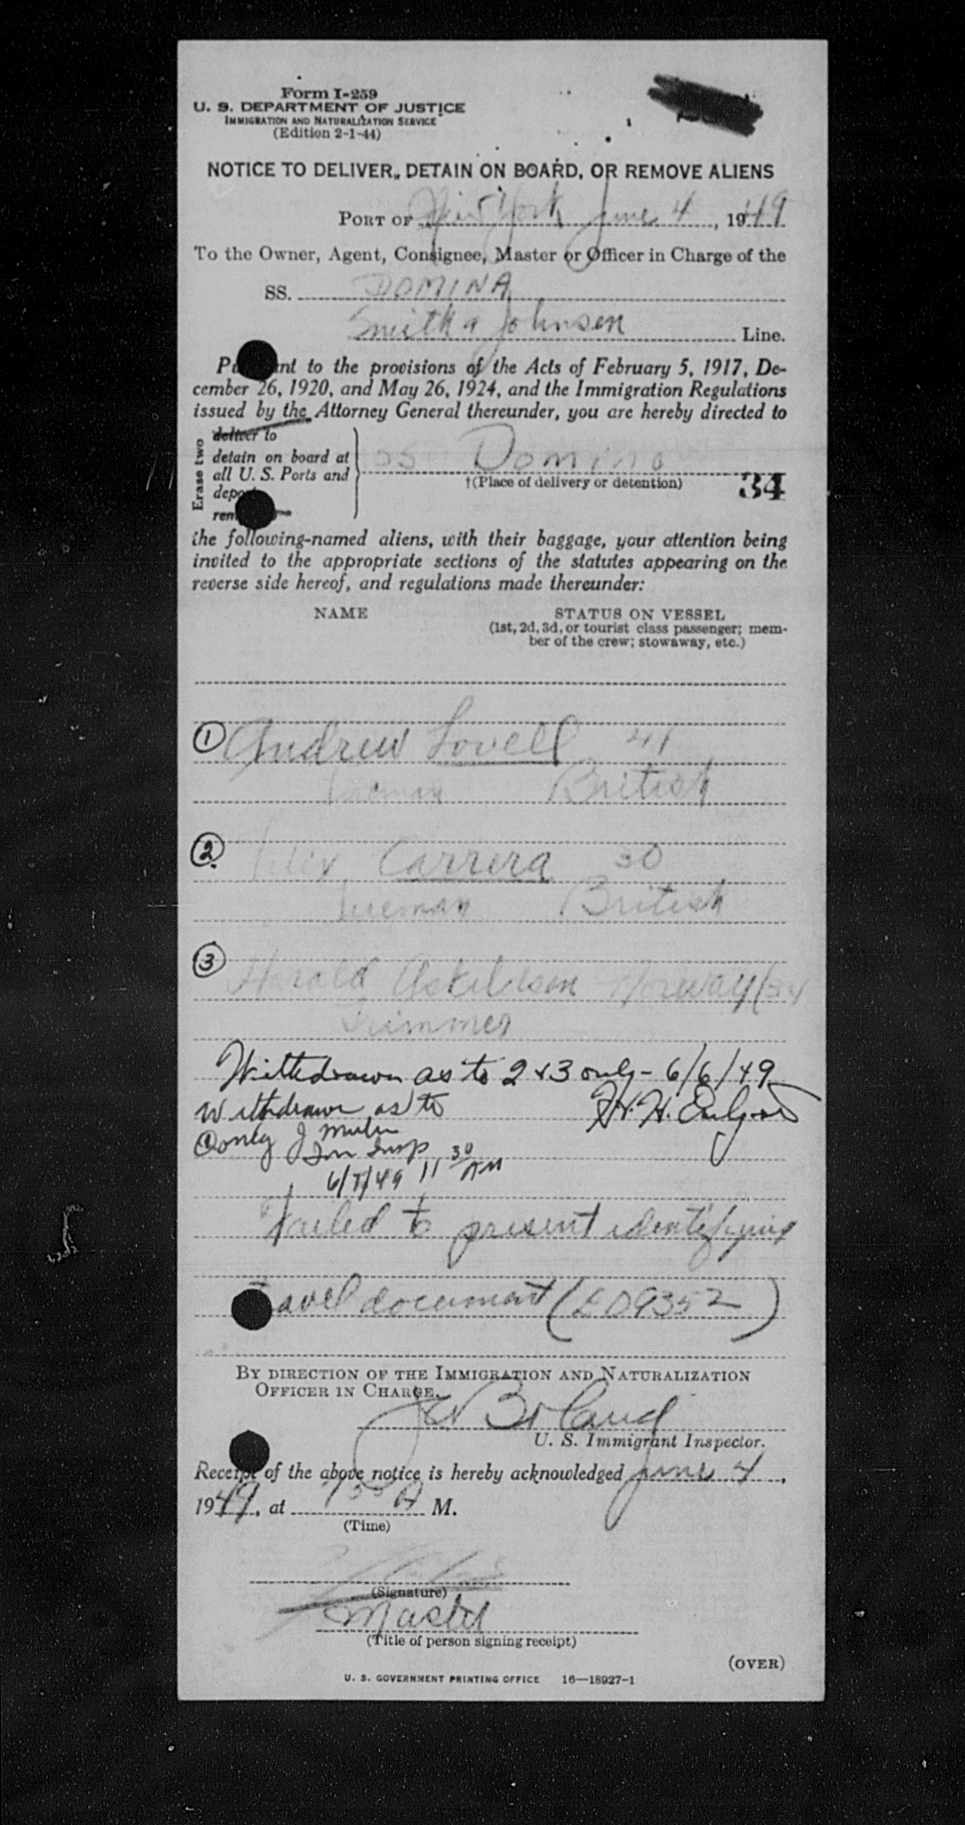 Form I-259
U. S. DEPARTMENT OF JUSTICE
IMMIGRATION AND NATURALIZATION SERVICE
(Edition 2-1-44)
NOTICE TO DELIVER, DETAIN ON BOARD, OR REMOVE ALIENS
PORT OF New York June 4, 1949
To the Owner, Agent, Consignee, Master or Officer in Charge of the
SS. DOMINA
Smith & Johnson Line.
to the provisions of the Acts of February 5, 1917, De-
cember 26, 1920, and May 26, 1924, and the Immigration Regulations
issued by the Attorney General thereunder, you are hereby directed to
Erase two
deliver to
detain on board at
all U. S. Ports and
SS Domina
†(Place of delivery or detention)
34
the following-named aliens, with their baggage, your attention being
invited to the appropriate sections of the statutes appearing on the
reverse side hereof, and regulations made thereunder:
NAME STATUS ON VESSEL
(1st, 2d, 3d, or tourist class passenger; mem-
ber of the crew; stowaway, etc.)
1 Andrew Lovell 41
British
2 Carrera 30
Fireman British
3 Harald Norway 34
Trimmer
Withdrawn as to 2 & 3 only - 6/6/49
Withdrawn as to
1 only J
Imm Insp
6/7/49 11 30 AM
Failed to present identifying
document
BY DIRECTION OF THE IMMIGRATION AND NATURALIZATION
OFFICER IN CHARGE.
Boland
U. S. Immigrant Inspector.
Receipt of the above notice is hereby acknowledged June 4,
1949, at A M.
(Time)
(Signature)
Master
(Title of person signing receipt)
(OVER)
U. S. GOVERNMENT PRINTING OFFICE 16—18927-1